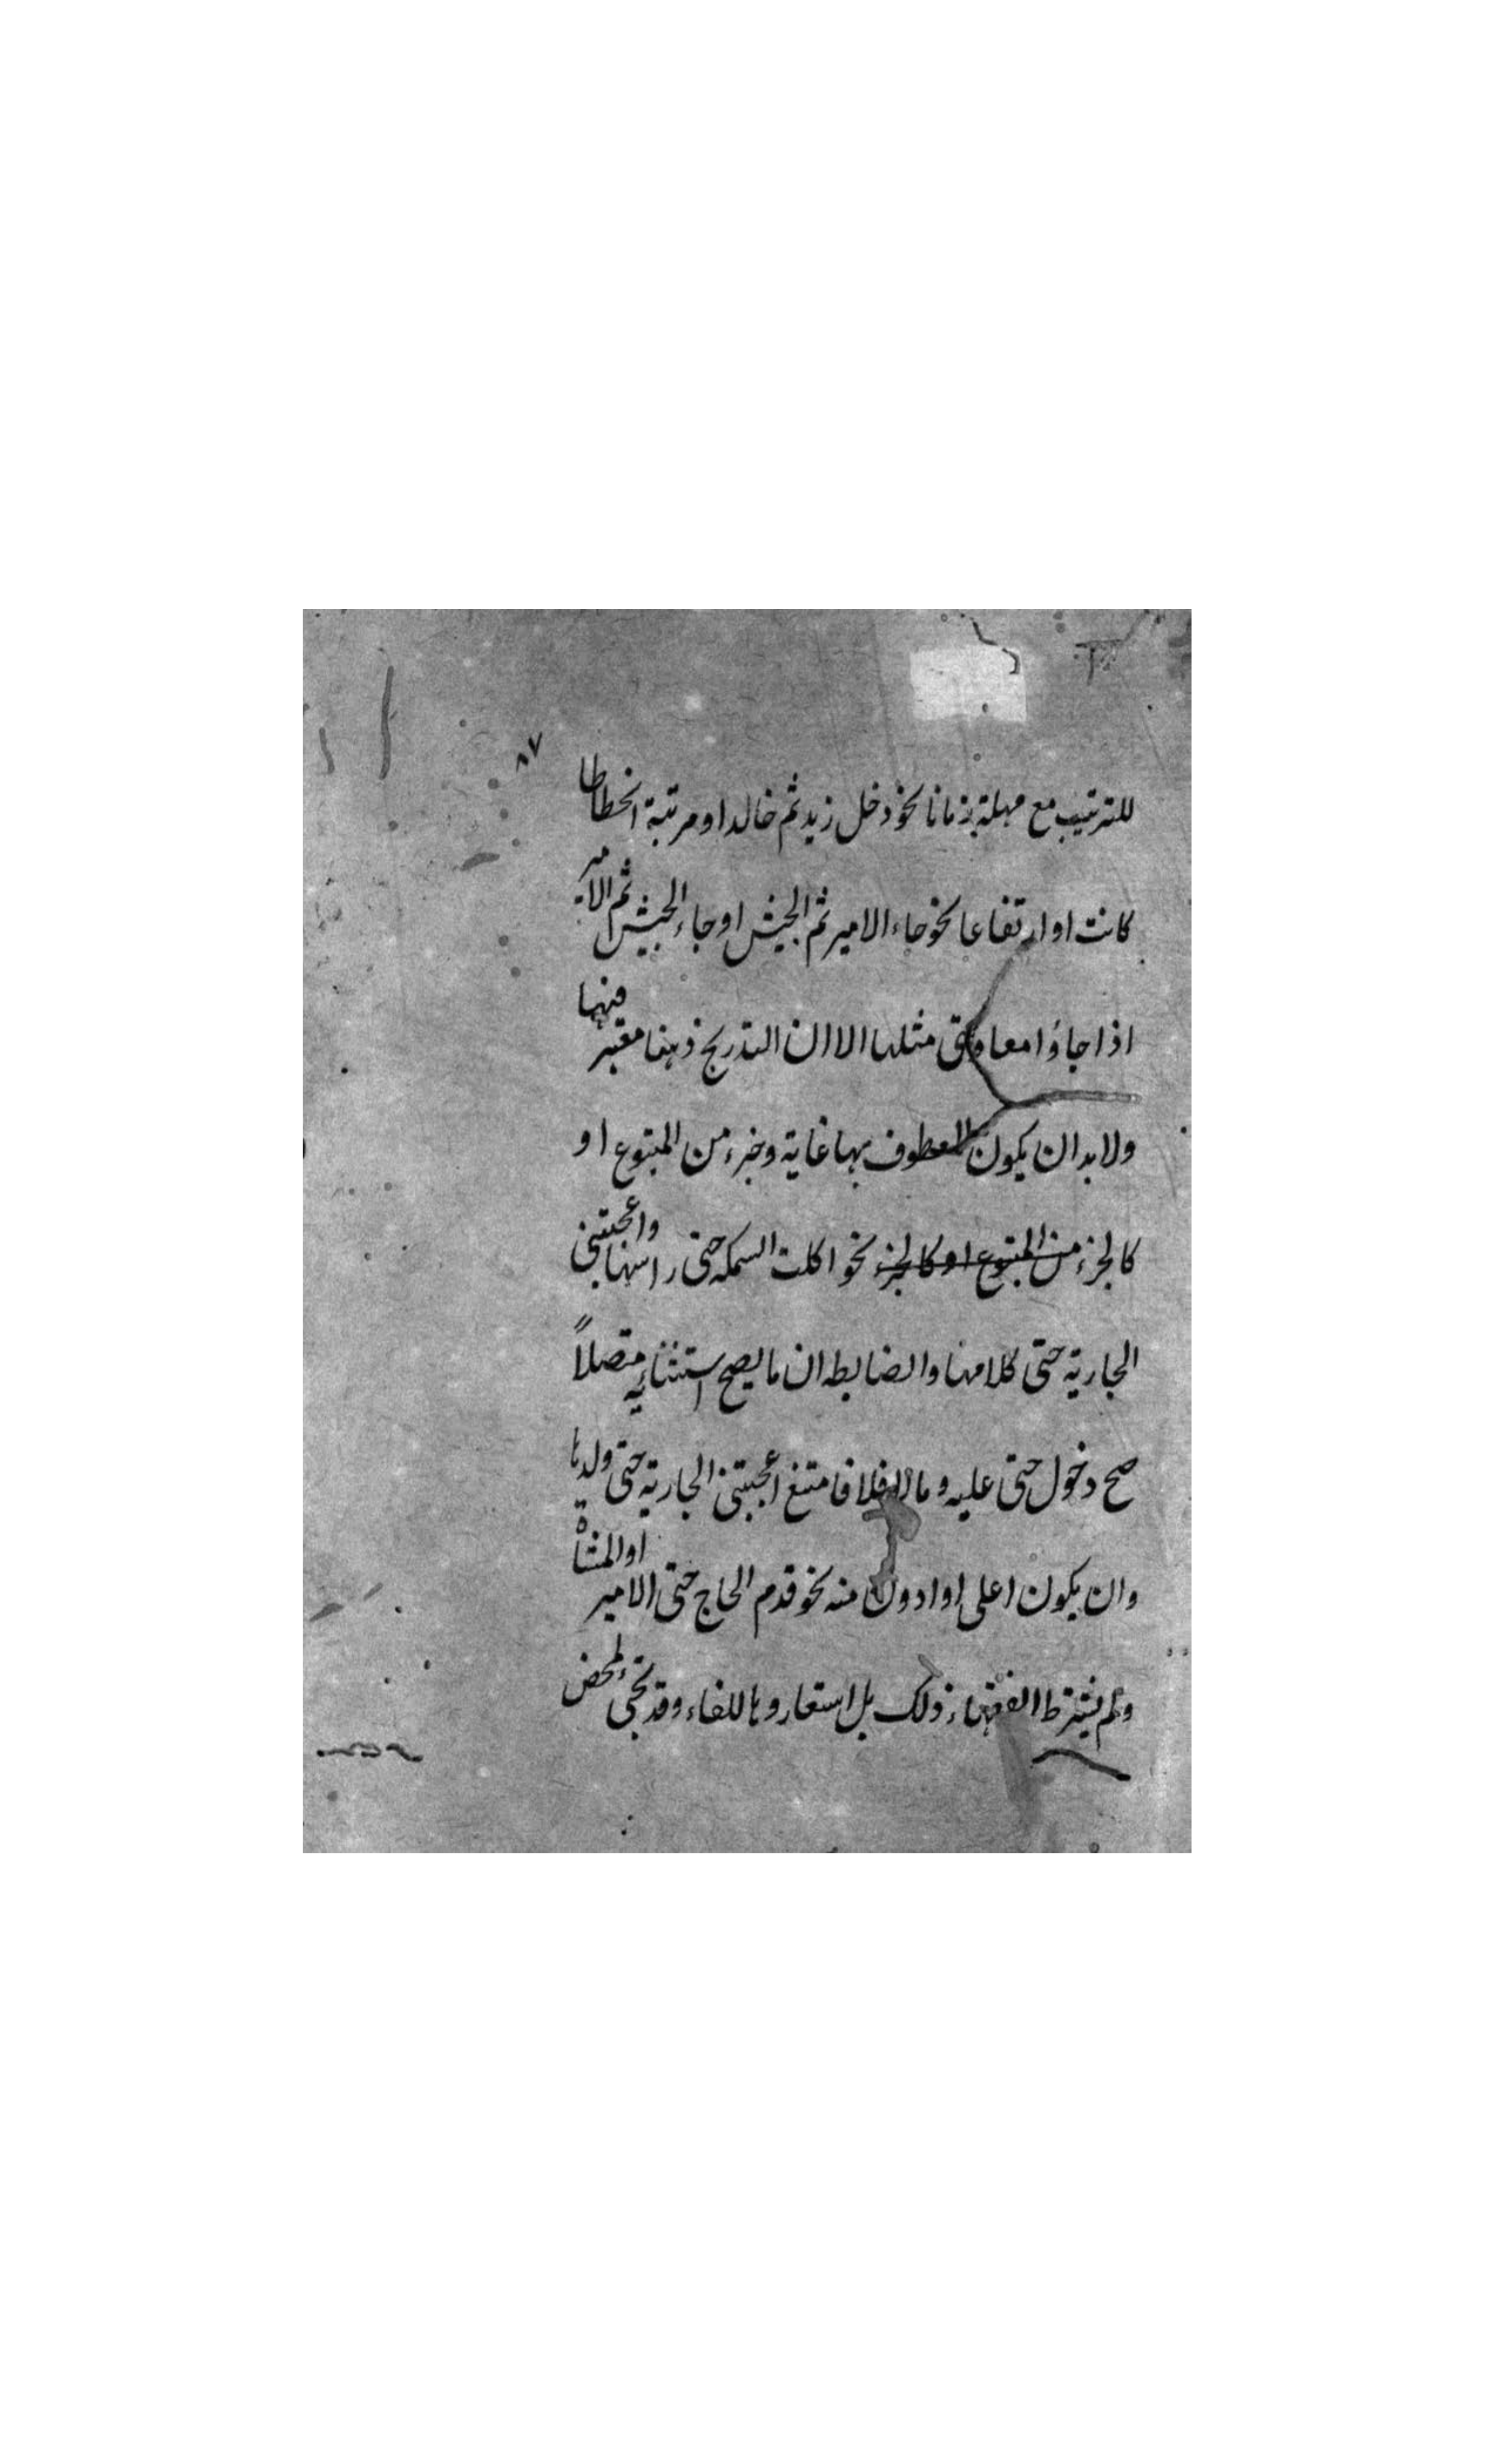 ٨٧
للترتيب مع مهلة زمانا نحو دخل زيد ثم خالد او مرتبة انحطاطا
كانت او ارتفاعا نحو جاء الامير ثم الجيش او جاء الجيش ثم الامير
اذا جاؤا معا وحتى مثلها الا ان التدريج ذهنا معتبر فيها
ولا بد ان يكون المعطوف بها غاية وجزء من المتبوع او
كالجزء من المتبوع او كالجزء نحو اكلت السمكه حتى راسها واعجبتنى
الجارية حتى كلامها والضابطه ان ما يصح استثنائه متصلاً
صح دخول حتى عليه وما لا فلا فامتنع اعجبتنى الجارية حتى ولدها
وان يكون اعلى او ادون منه نحو قدم الحاج حتى الامير او المشاة
ولم يشترط الفقهاء ذلك بل استعاروها للفاء وقد تجئ لمحض